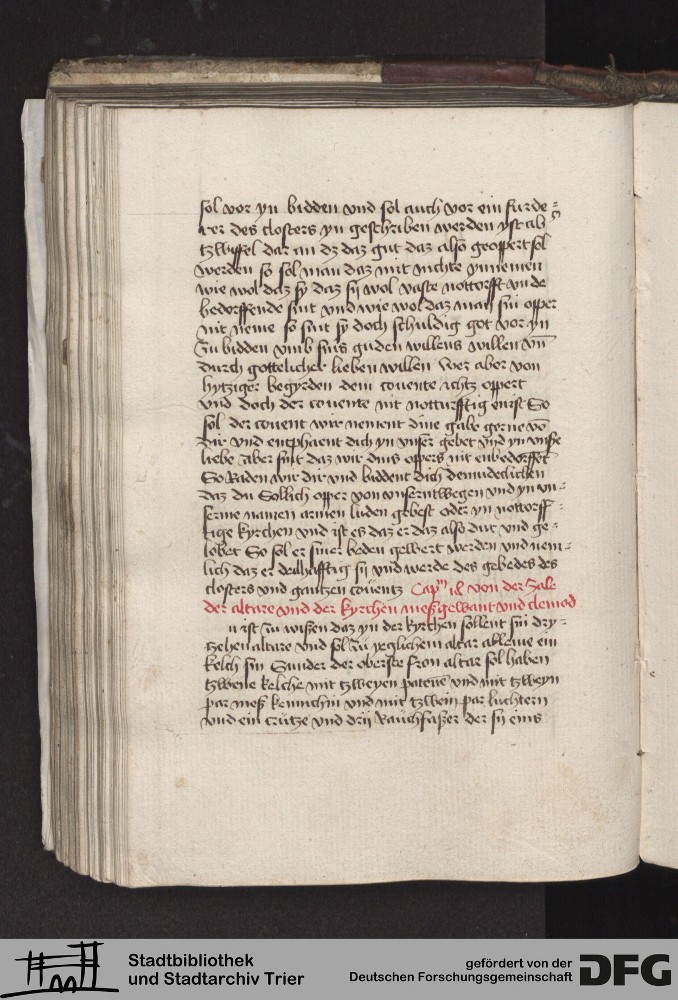 sol vor yn bidden vnd sol auch vor ein furde⸗
rer des closters yn geschriben werden yst ab
tzwiffel dar an dz daz gut daz also geoppert sol
werden so sol man daz mit nichte ynnemen
wie wol daz sy daz sij wol vaste nottorfft vnde
bedorffende sint vnd wie wol daz man sin opper
nit neme so sint sy doch schuldig got vor yn
zu bidden vmb sins guden willens willen vn̄
durch gottelicher lieben willen Wer aber von
hytziger begyrden dem couente ichtz oppert
vnd doch der couente nit notturfftig enist So
sol der couent wir nement dine gabe gerne vō
dir vnd entphaent dich yn vnser gebet vnd yn vnse
liebe Aber sint daz wir dins oppers nit enbedorffet
So Raden wir dir vnd biddent dich demudeclichen
daz du Sollich opper von vnserntwegen vnd yn vn⸗
serme namen armen luden gebest oder yn nottorff⸗
tige kyrchen vnd ist es daz er daz also dut vnd ge⸗
lobet So sol er siner beden gewert werden vnd nem⸗
lich daz er deilhafftig sij vnd werde des gebedes des
closters vnd gantzen couentz Capm̄ il von der Zale
der altare vnd der kyrchen meßgewant vnd cleinod
u ist zu wißen daz yn der kyrchen sollent sin dry⸗
tzehen altare vnd sol zu yeglichem altar alleine ein
kelch sin Sunder der oberste fron altar sol haben
tzwene kelche mit tzweyen pateuē vnd mit tzweyn
par meß kennichin vnd mit tzwein par luchtern
vnd ein crutze vnd drij Rauchfaßer der sij eins
Stadtbibliothek
und Stadtarchiv Trier
gefördert von der
Deutschen Forschungsgemeinschaft
DFG